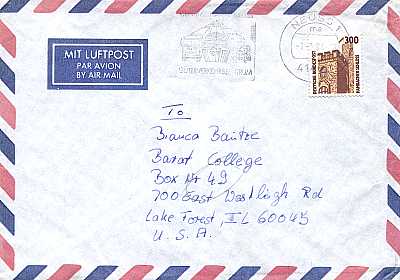 MIT LUFTPOST
PAR AVION
BY AIR MAIL
NEUSS 1
300
DEUTSCHE BUNDESPOST
To
Bianca Bautze
Barat College
Box Nr 49
700 East Westleigh Rd
Lake Forest, IL 60045
U.S.A.